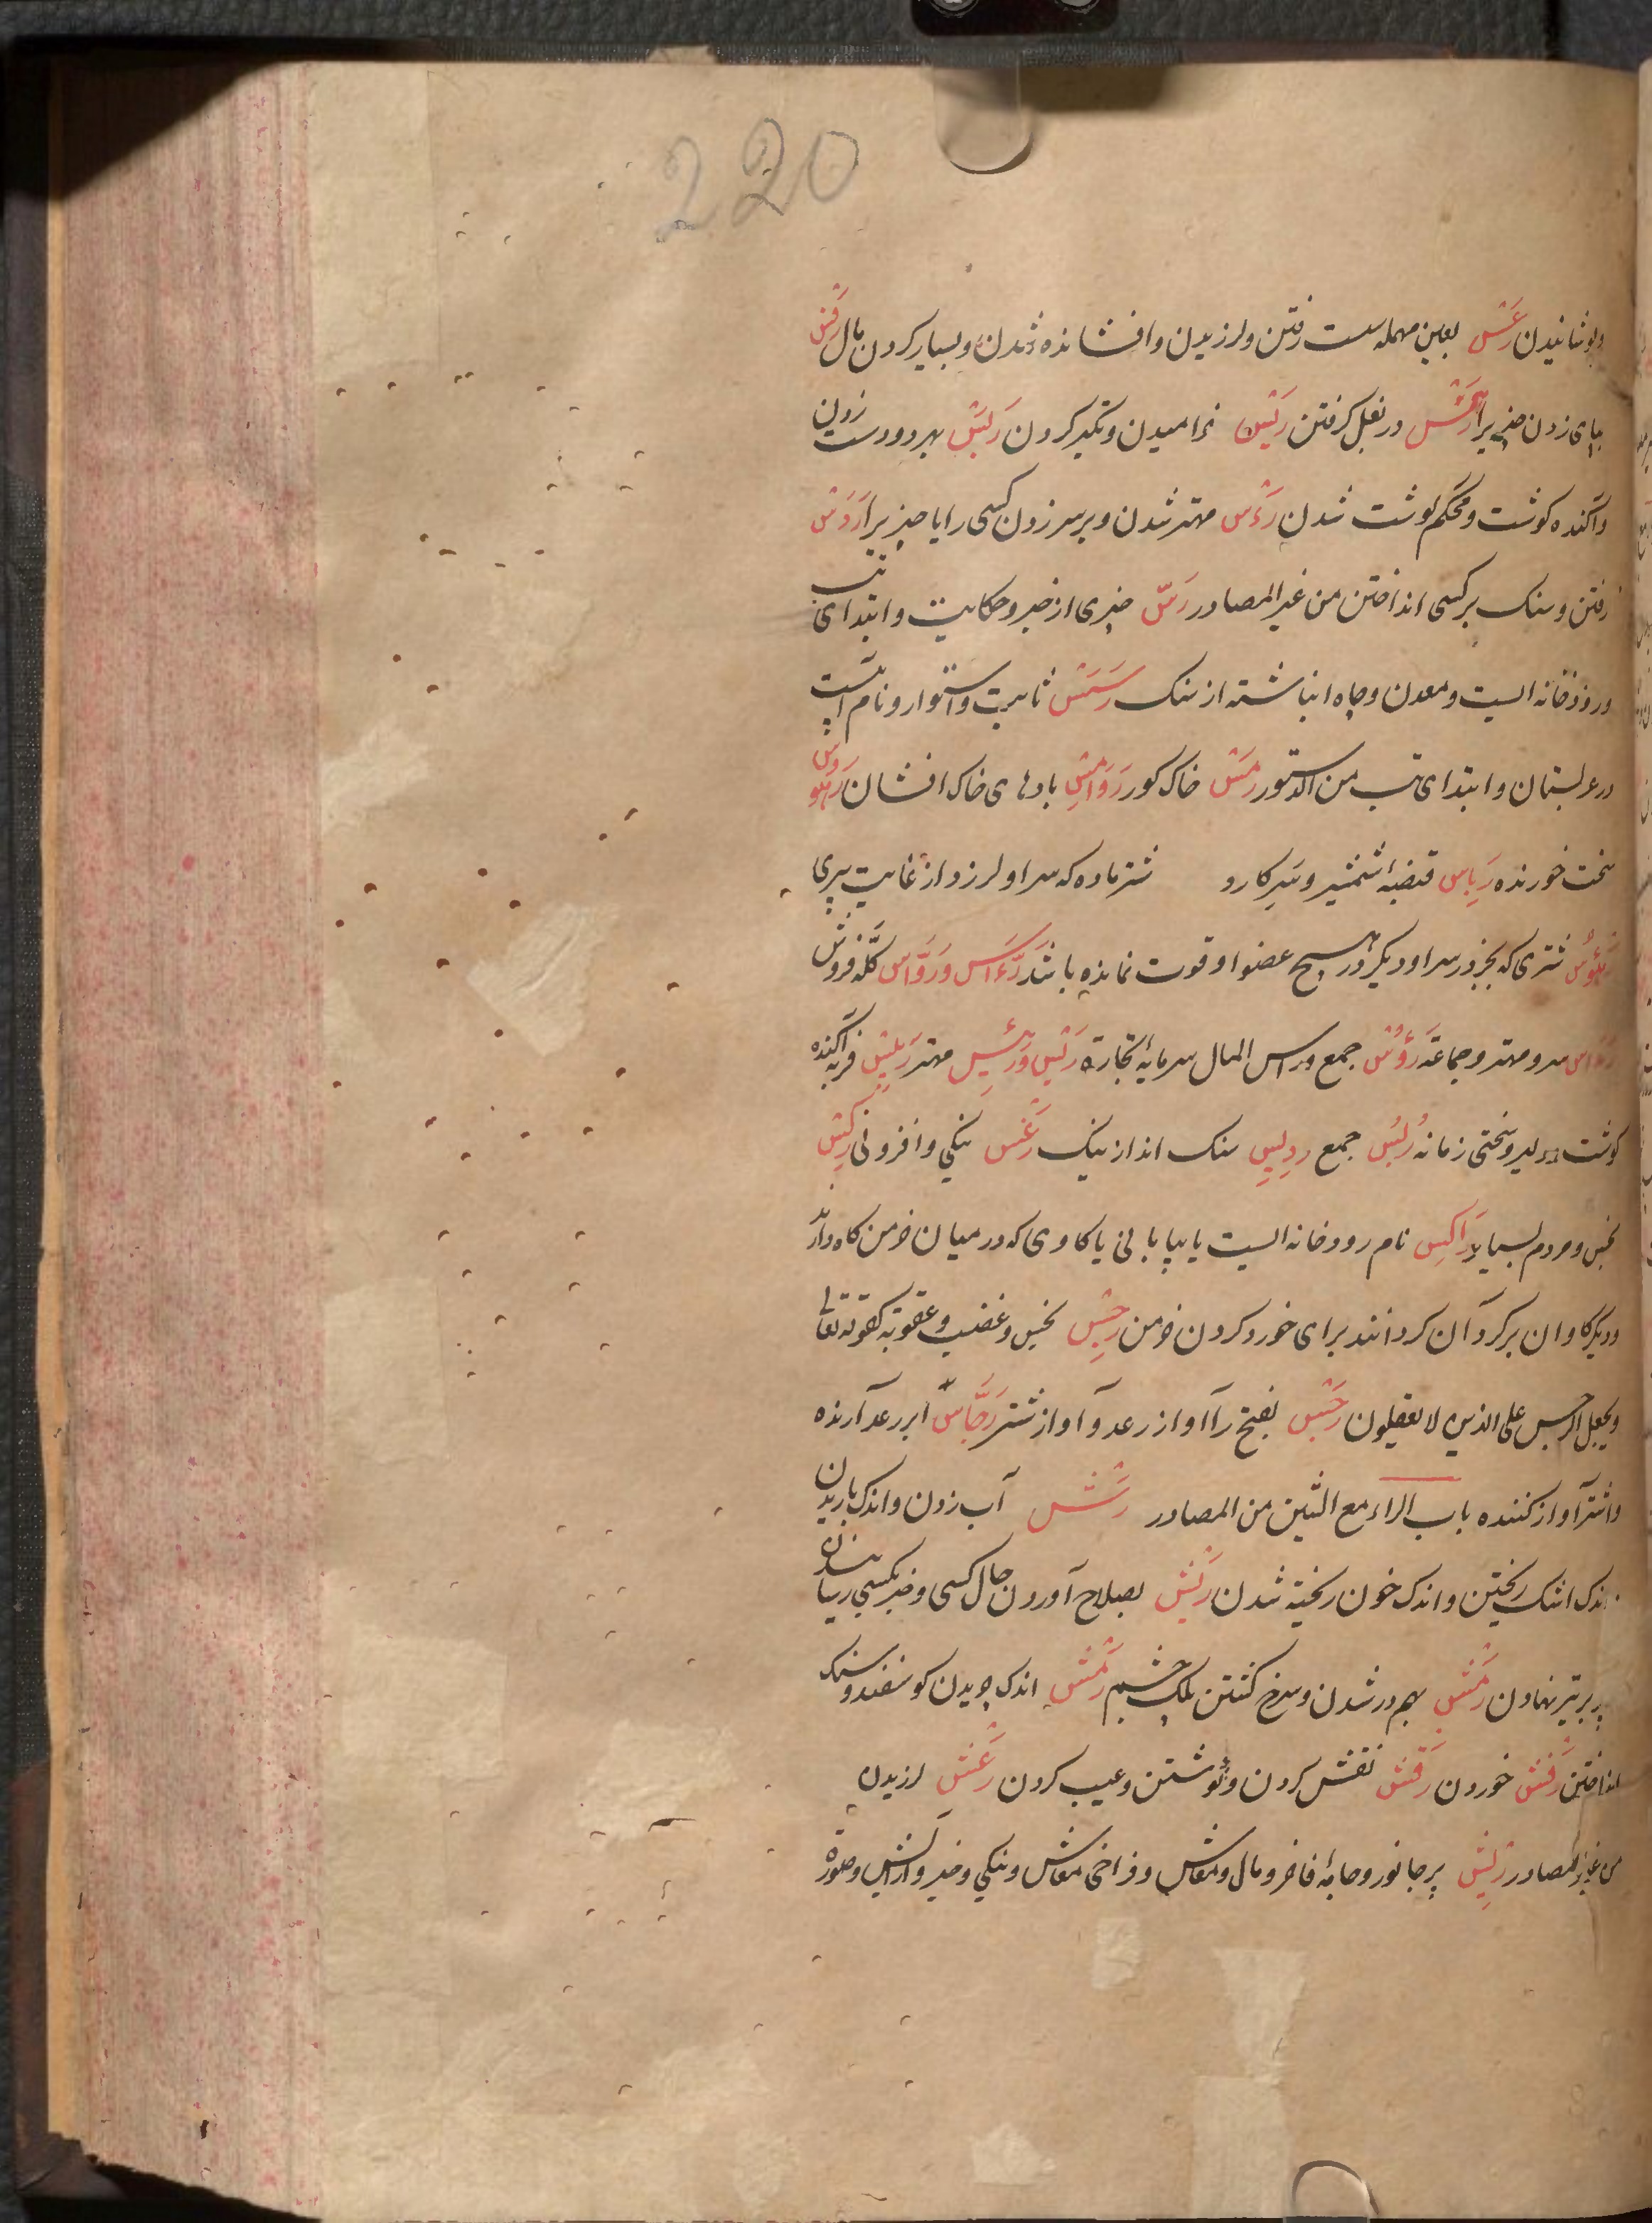 220
وپوشانیدن رَعْس بعین مهمله سست رفتن ولرزیدن وافشانده شدن وبسیار کردن مال رَفْس
بپای زدن چیزیرا رَمْس در بغل کرفتن رَیْس خرامیدن وتکبر کردن رَبْس بهر دو دست زدن
واکنده کوشت ومحکم کوشت شدن رَءْس مهتر شدن وبر سر زدن کسی را یا چیزیرا رَدْس
رفتن وسنک بر کسی انداختن من غیر المصادر رَسّ چیزی از خبر وحکایت وابتدای تب
ورودخانه ایست ومعدن وچاه انباشته از سنک ثابت واستوار ونام
در عربستان وابتدای تب من الدستور رَمْس خاک کور رَوَامِس بادهای خاک افشان
سخت خورنده رِیَاس قبضهٔ شمشیر وتبر کارد شتر ماده که سر او لرزد از غایت پیری
شتری که بجز در سر او دیکر در هیچ عضو او قوت نمانده باشد رَءَّاس وَرَوَّاس کلّه فروش
سر ومهتر وجماعة رُؤُس جمع وراس المال سرمایهٔ تجارة رَیِّس وَرَئِیس مهتر رَبِیس فربه اکنده
کوشت ودلیر وسختی زمانه رُبُس جمع ردیس سنک انداز نیک رَغْس نیکی وافزونی رِکْس
نجس ومردم بسیار رَاکِس نام رودخانه ایست یا بیابانی یا کاوی که در میان خرمن کاه دارند
ودیکر کاوان بر کرد آن کردانند برای خورد کردن خرمن رِجْس نجس وغضب وعقوبة کقوله تعالی
ویجعل الرجس علی الذین لا یعقلون رَجْس بفتح را آواز رعد وآواز شتر رَجَّاس ابر رعد آرنده
واشتر آواز کننده باب الراء مع الشین من المصادر رَشّ آب زدن واندک باریدن
واندک اشک ریختن واندک خون ریخته شدن رَیْش بصلاح آوردن حال کسی وخیر بکسی رسانیدن
پر بر تیر نهادن رَمَش بهم در شدن وسرخ کشتن پلک چشم رَمْش اندک چریدن کوسفند وسنک
انداختن رَفْش خوردن رَقْش نقش کردن ونوشتن وعیب کردن رَعْش لرزیدن
من غیر المصادر رِیش پر جانور وجامهٔ فاخر ومال ومعاش وفراخی معاش ونیکی وخیر وآرایش وصورة